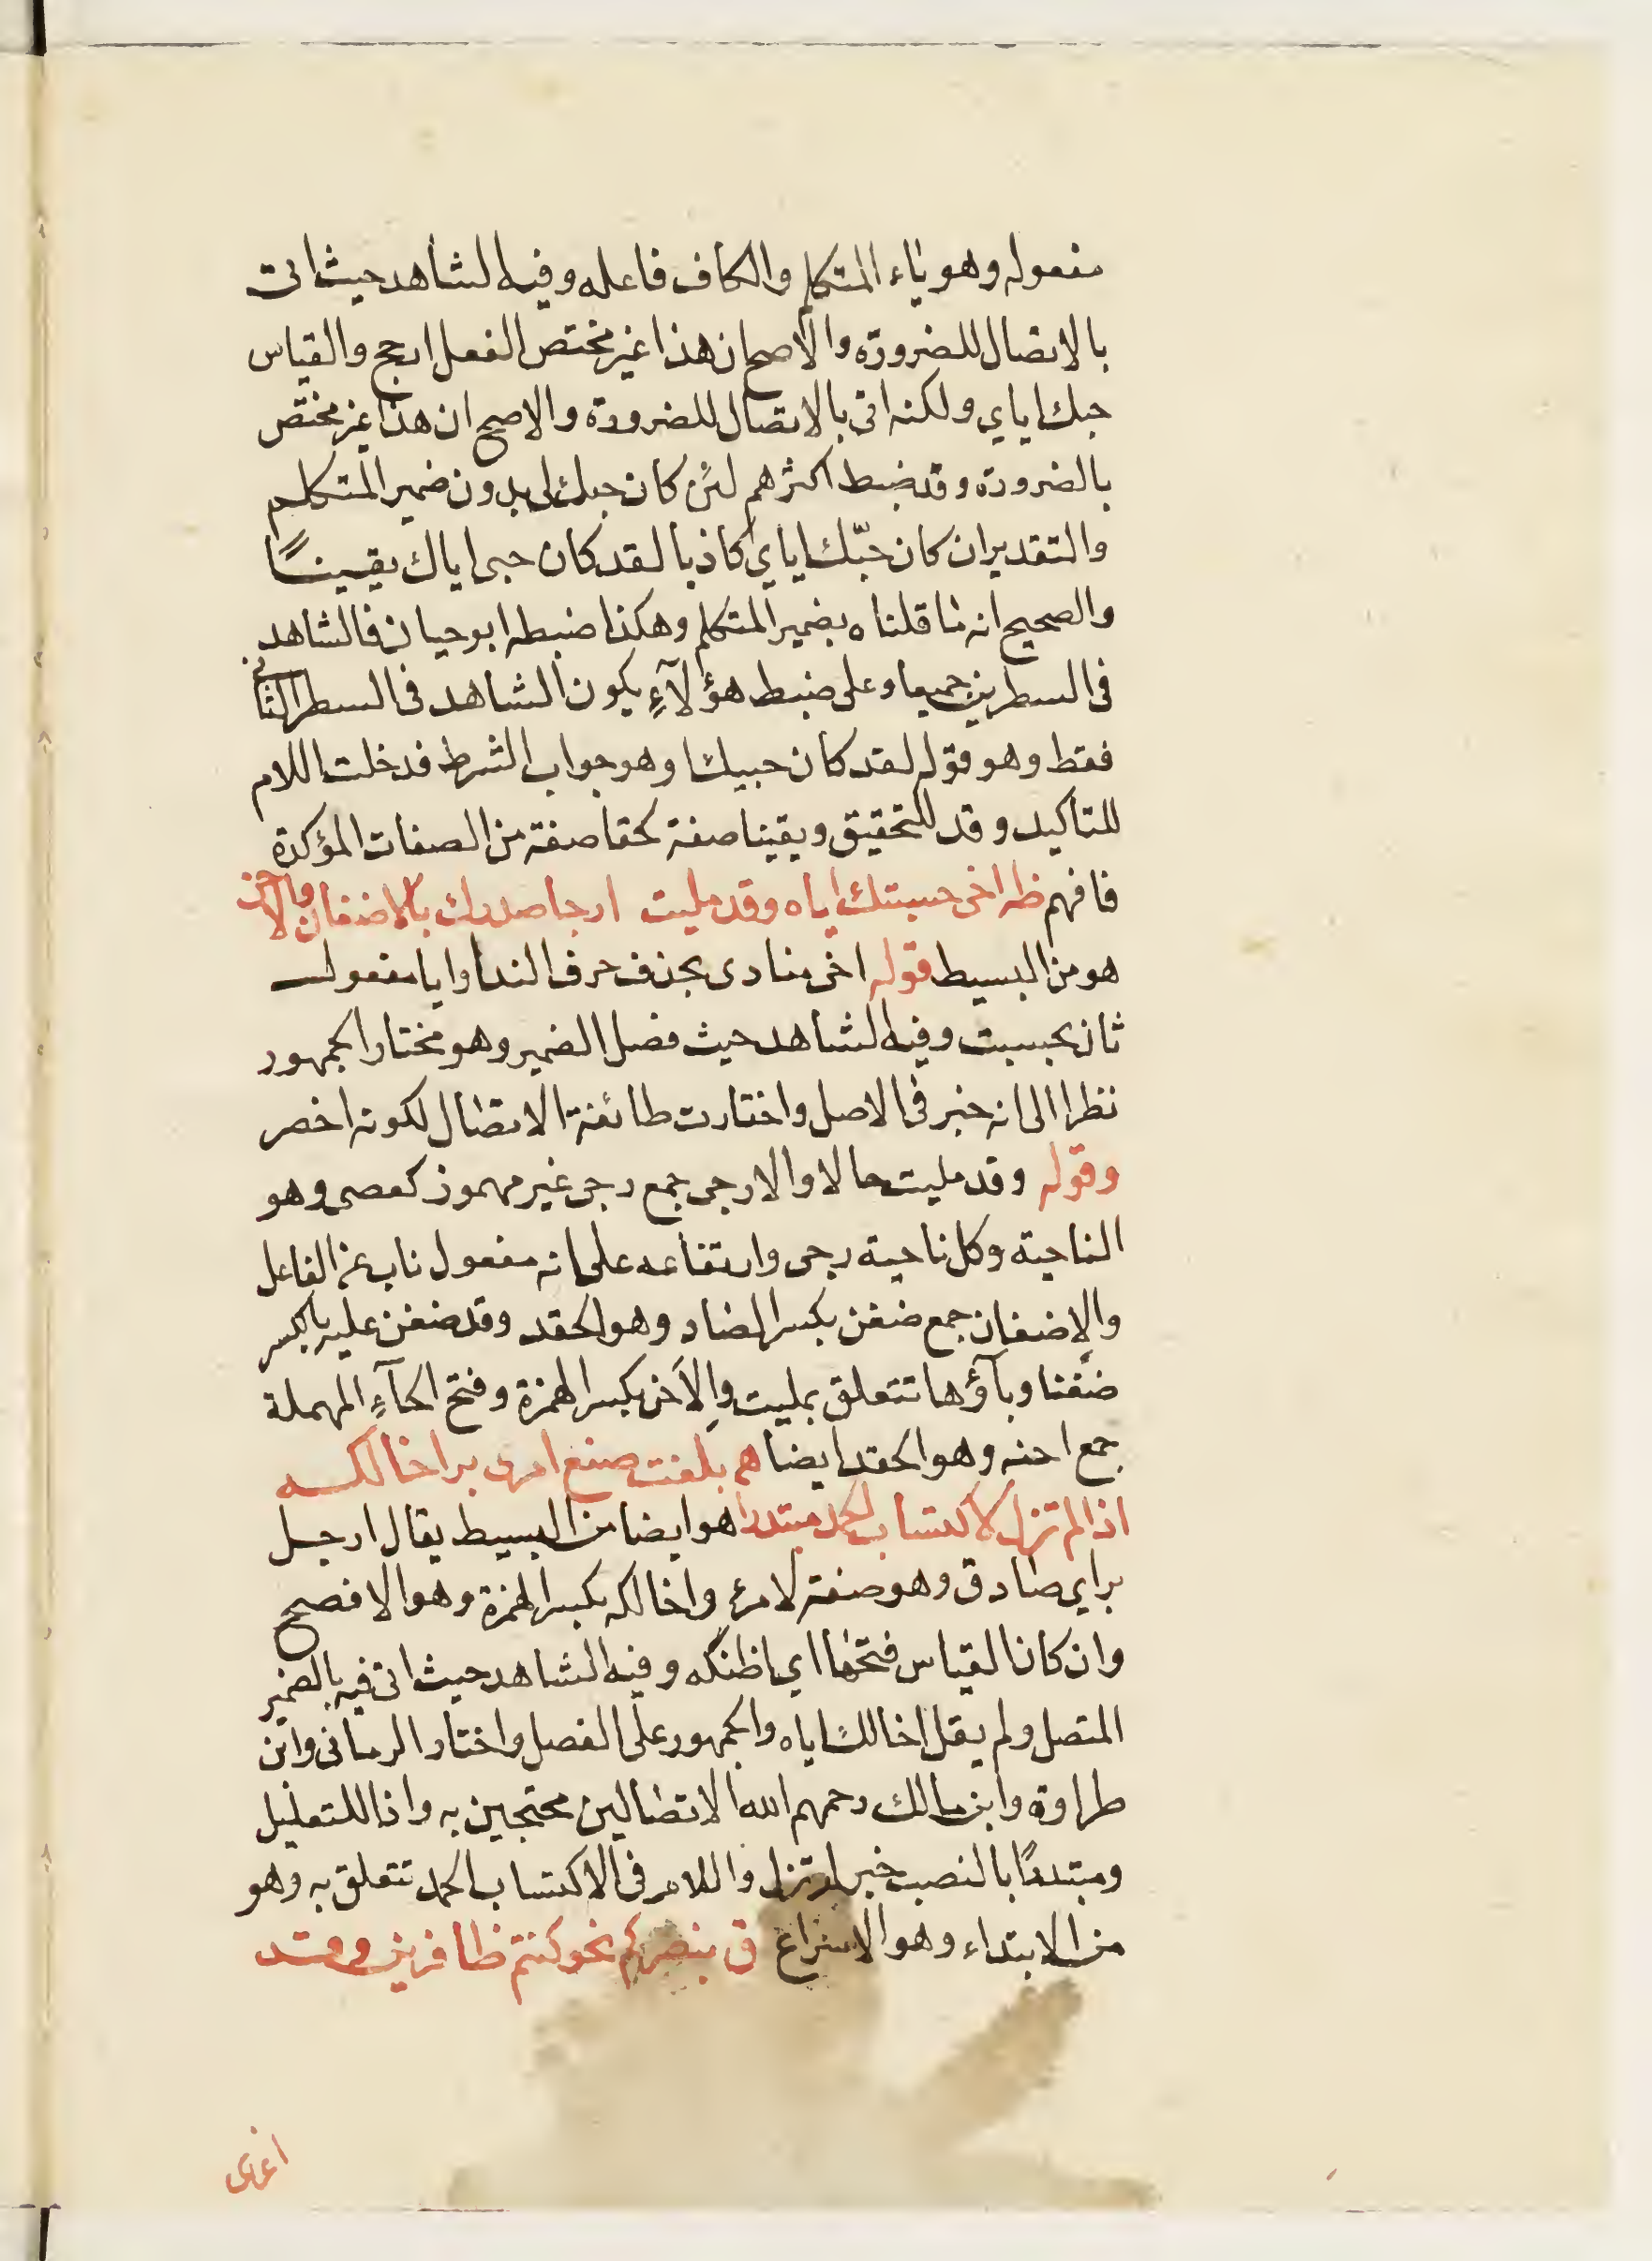 مفعوله وهو ياء المتكلم والكاف فاعله وفيه الشاهد حيث اتى
بالاتصال للضرورة والاصح ان هذا غير مختص الفعل ارجح والقياس
حبك اياي ولكنه اتى بالاتصال للضرورة والاصح ان هذا غير مختص
بالضرورة وقد ضبط اكثرهم لئن كان حبك لي بدون ضمير المتكلم
والتقدير ان كان حبّك اياي كاذبا لقد كان حبي اياك يقينًا
والصحيح انه ما قلناه بضمير المتكلم وهكذا ضبطه ابو حيان فالشاهد
في السطرين جميعا وعلى ضبط هؤلآءِ يكون الشاهد في السطر الثاني
فقط وهو قوله لقد كان حبيك وهو جواب الشرط فدخلت اللام
للتاكيد وقد للتحقيق ويقينا صفة كحقا صفة من الصفات المؤكدة
فافهم ظه اخي حسبتك اياه وقد مليت ارجا صدرك بالاضغان والاحن
هو من البسيط قوله اخي منادى بحذف حرف الندا وايا مفعول
ثان بحسبت وفيه الشاهد حيث فصل الضمير وهو مختار الجمهور
نظرا الى انه خبر في الاصل واختارت طائفة الاتصال لكونه اخصر
وقوله وقد مليت حالا والارجى جمع رجى غير مهموز كعصى وهو
الناحية وكل ناحية رجى وارتفاعه على انه مفعول ناب عن الفاعل
والاضغان جمع ضغن بكسر الضاد وهو الحقد وقد ضغن عليه بالكسر
ضغنا وبآؤها تتعلق بمليت والاحن بكسر الهمزة وفتح الحآءِ المهملة
جمع احنه وهو الحقد ايضا هم بلغت صنع امرئ بر اخالكه
اذ لم تزل لاكتساب الحمد مبتدرا هو ايضا من البسيط يقال رجل
بر اي صادق وهو صفة لامرئ واخالكه بكسر الهمزة وهو الافصح
وان كان القياس فتحها اي اظنكه وفيه الشاهد حيث اتى فيه بالضمير
المتصل ولم يقل اخالك اياه والجمهور على الفصل واختار الرماني وابن
طراوة وابن مالك رحمهم الله الاتصالين محتجين به واذا للتعليل
ومبتدرًا بالنصب خبر لم تزل واللام في الاكتساب الحمد تتعلق به وهو
من الابتداء وهو الاسراع ق بنصركم نحو كنتم ظافرين وقد
اغرى